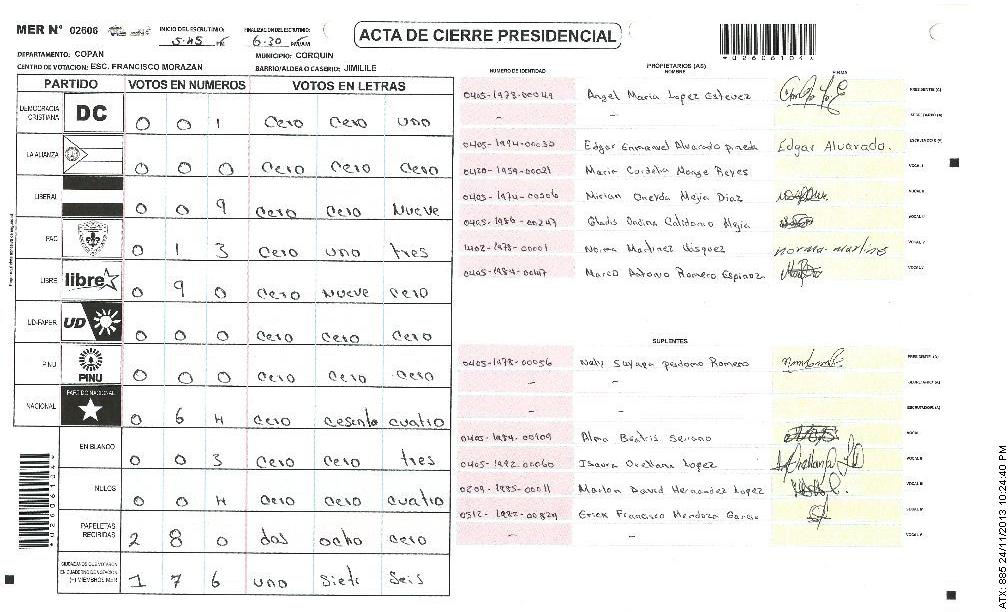 MER Nº 02606
INICIO DEL ESCRUTINIO: 5:45 PM
FINALIZACION DEL ESCRUTINIO: 6:30 PM/AM
ACTA DE CIERRE PRESIDENCIAL
*02606104*
DEPARTAMENTO: COPAN
MUNICIPIO: CORQUIN
CENTRO DE VOTACION: ESC. FRANCISCO MORAZAN
BARRIO/ALDEA O CASERIO: JIMILILE
PARTIDO VOTOS EN NUMEROS VOTOS EN LETRAS
DEMOCRACIA CRISTIANA DC 0 0 1 Cero Cero uno
LA ALIANZA 0 0 0 Cero Cero Cero
LIBERAL 0 0 9 Cero Cero Nueve
PAC 0 1 3 Cero uno tres
LIBRE libre 0 9 0 Cero Nueve Cero
UD-FAPER UD 0 0 0 Cero Cero Cero
PINU PINU 0 0 0 Cero Cero Cero
NACIONAL PARTIDO NACIONAL 0 6 4 Cero Cesenta cuatro
EN BLANCO 0 0 3 Cero Cero tres
NULOS 0 0 4 Cero Cero cuatro
PAPELETAS RECIBIDAS 2 8 0 dos ocho cero
CIUDADANOS QUE VOTARON EN CUADERNO DE VOTACION (+) MIEMBROS MER 1 7 6 uno Siete Seis
*02606104*
NUMERO DE IDENTIDAD
PROPIETARIOS (AS)
NOMBRE
FIRMA
0405-1973-00049 Angel Maria Lopez Estevez PRESIDENTE (A)
- - SECRETARIO (A)
0405-1994-00030 Edgar Enmanuel Alvarado pineda Edgar Alvarado. ESCRUTADOR (A)
0420-1959-00021 Maria Cordelia Monge Reyes VOCAL I
0405-1974-00306 Mirian Oneyda Mejia Diaz VOCAL II
0405-1986-00247 Gladis Ondina Calidonio Mejia VOCAL III
1402-1978-00001 Norma Martinez Vasquez norma martines VOCAL IV
0405-1984-00147 Marco Antonio Romero Espinoza VOCAL V
SUPLENTES
0405-1978-00056 Nely Suyapa perdomo Romero PRESIDENTE (A)
- - SECRETARIO (A)
- - ESCRUTADOR (A)
0405-1984-00109 Alma Beatris Serrano VOCAL I
0405-1992-00060 Isaura Orellana Lopez VOCAL II
0209-1985-00011 Marlon David Hernandez Lopez VOCAL III
0312-1982-00329 Erick Francisco Mendoza Garcia VOCAL IV
- - VOCAL V
ATX: 885 24/11/2013 10:24:40 PM